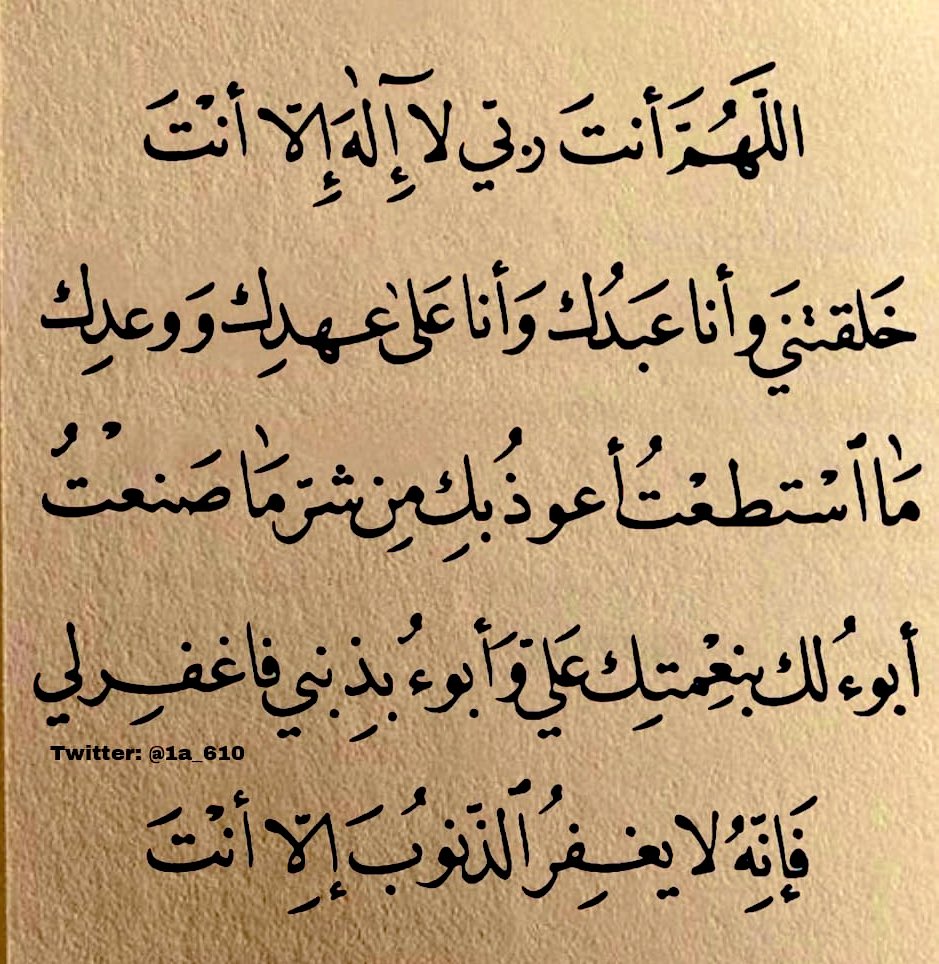 اللَّهُمَّ أنتَ ربّي لآ إِلٰهَ إِلّا أنْتَ
خَلقتني وَأنا عَبدُك وَأنا عَلىٰ عهدِك وَ وعدِك
مَٰا ٱسْتطعْتُ أعوذُ بكِ مِن شرّ مَٰا صَنعْتُ
أبوءُ لك بنعِْمتِك عَليّ وَأبوءُ بذِنبي فاغفِر لي
Twitter: @1a_610
فَإِنّهُ لا يغفِرُ ٱلذّنوُبَ إِلّا أنْتَ